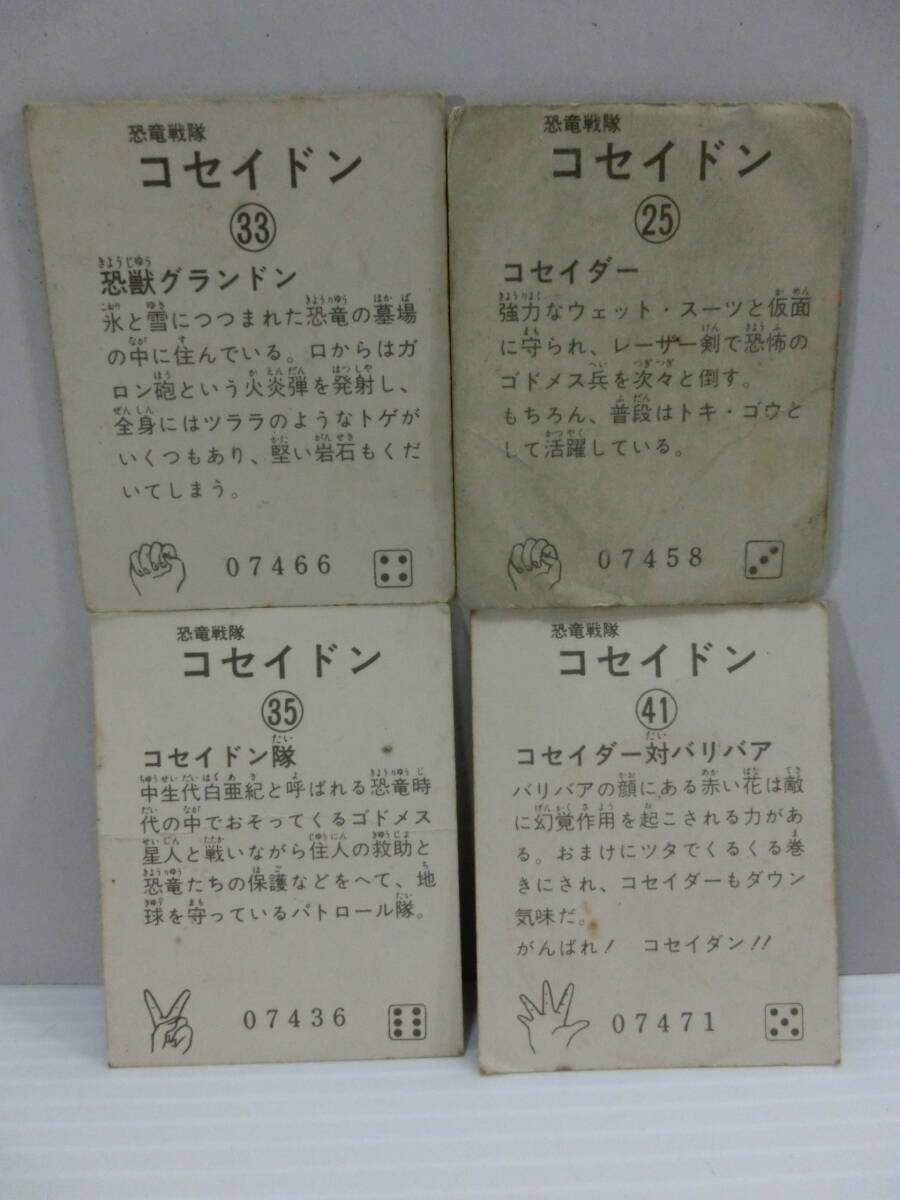 恐竜戦隊
コセイドン
33
恐獣グランドン
氷と雪につつまれた恐竜の墓場
の中に住んでいる。口からはガ
ロン砲という火炎弾を発射し、
全身にはツララのようなトゲが
いくつもあり、堅い岩石もくだ
いてしまう。
07466
恐竜戦隊
コセイドン
25
コセイダー
強力なウェット・スーツと仮面
に守られ、レーザー剣で恐怖の
ゴドメス兵を次々と倒す。
もちろん、普段はトキ・ゴウと
して活躍している。
07458
恐竜戦隊
コセイドン
35
コセイドン隊
中生代白亜紀と呼ばれる恐竜時
代の中でおそってくるゴドメス
星人と戦いながら住人の救助と
恐竜たちの保護などをへて、地
球を守っているパトロール隊。
07436
恐竜戦隊
コセイドン
41
コセイダー対バリバア
バリバアの顔にある赤い花は敵
に幻覚作用を起こされる力があ
る。おまけにツタでくるくる巻
きにされ、コセイダーもダウン
気味だ。
がんばれ! コセイダン!!
07471